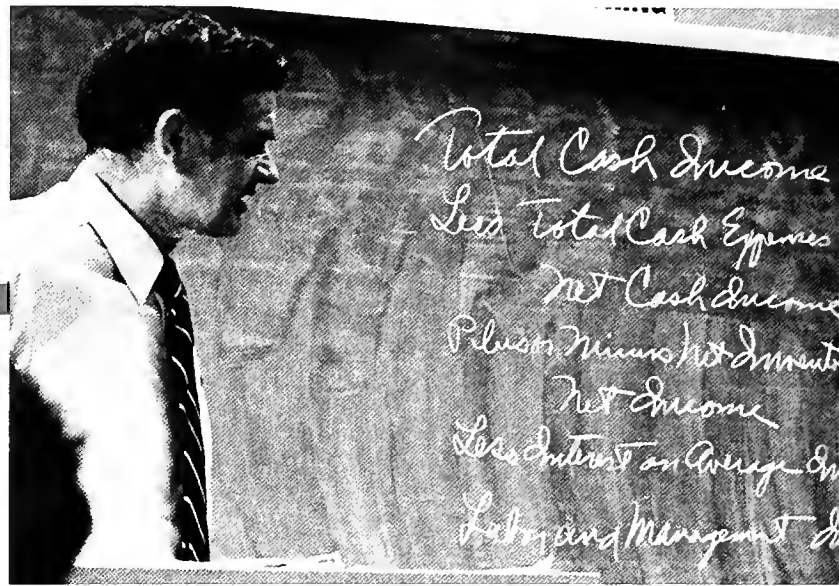 Total Cash Income
Less Total Cash Expenses
Net Cash Income
Plus or Minus Net Invento
Net Income
Less Interest on Average In
Labor and Management In